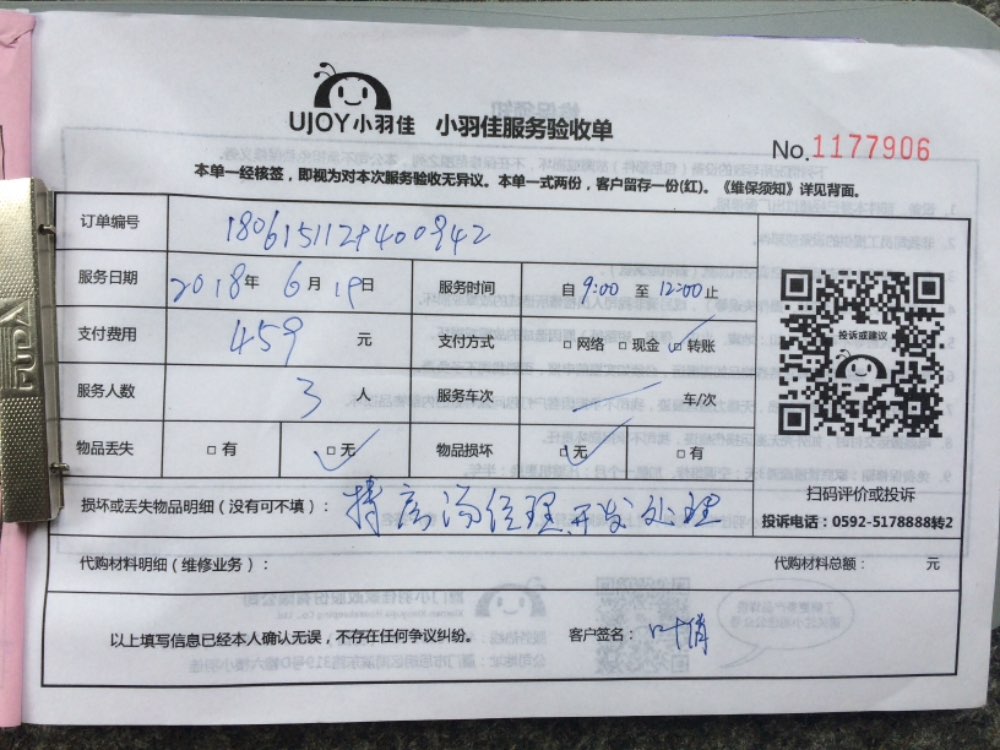 UJOY小羽佳 小羽佳服务验收单
No.1177906
本单一经核签，即视为对本次服务验收无异议。本单一式两份，客户留存一份(红)。《维保须知》详见背面。
订单编号
服务日期 2018年 6月 19日 服务时间 自 9:00 至 12:00 止
支付费用 459 元 支付方式 □网络 □现金 □转账
投诉或建议
服务人数 3 人 服务车次 车/次
物品丢失 □有 □无 物品损坏 □无 □有
扫码评价或投诉
损坏或丢失物品明细（没有可不填）： 处理
投诉电话：0592-5178888转2
代购材料明细（维修业务）： 代购材料总额： 元
以上填写信息已经本人确认无误，不存在任何争议纠纷。 客户签名：